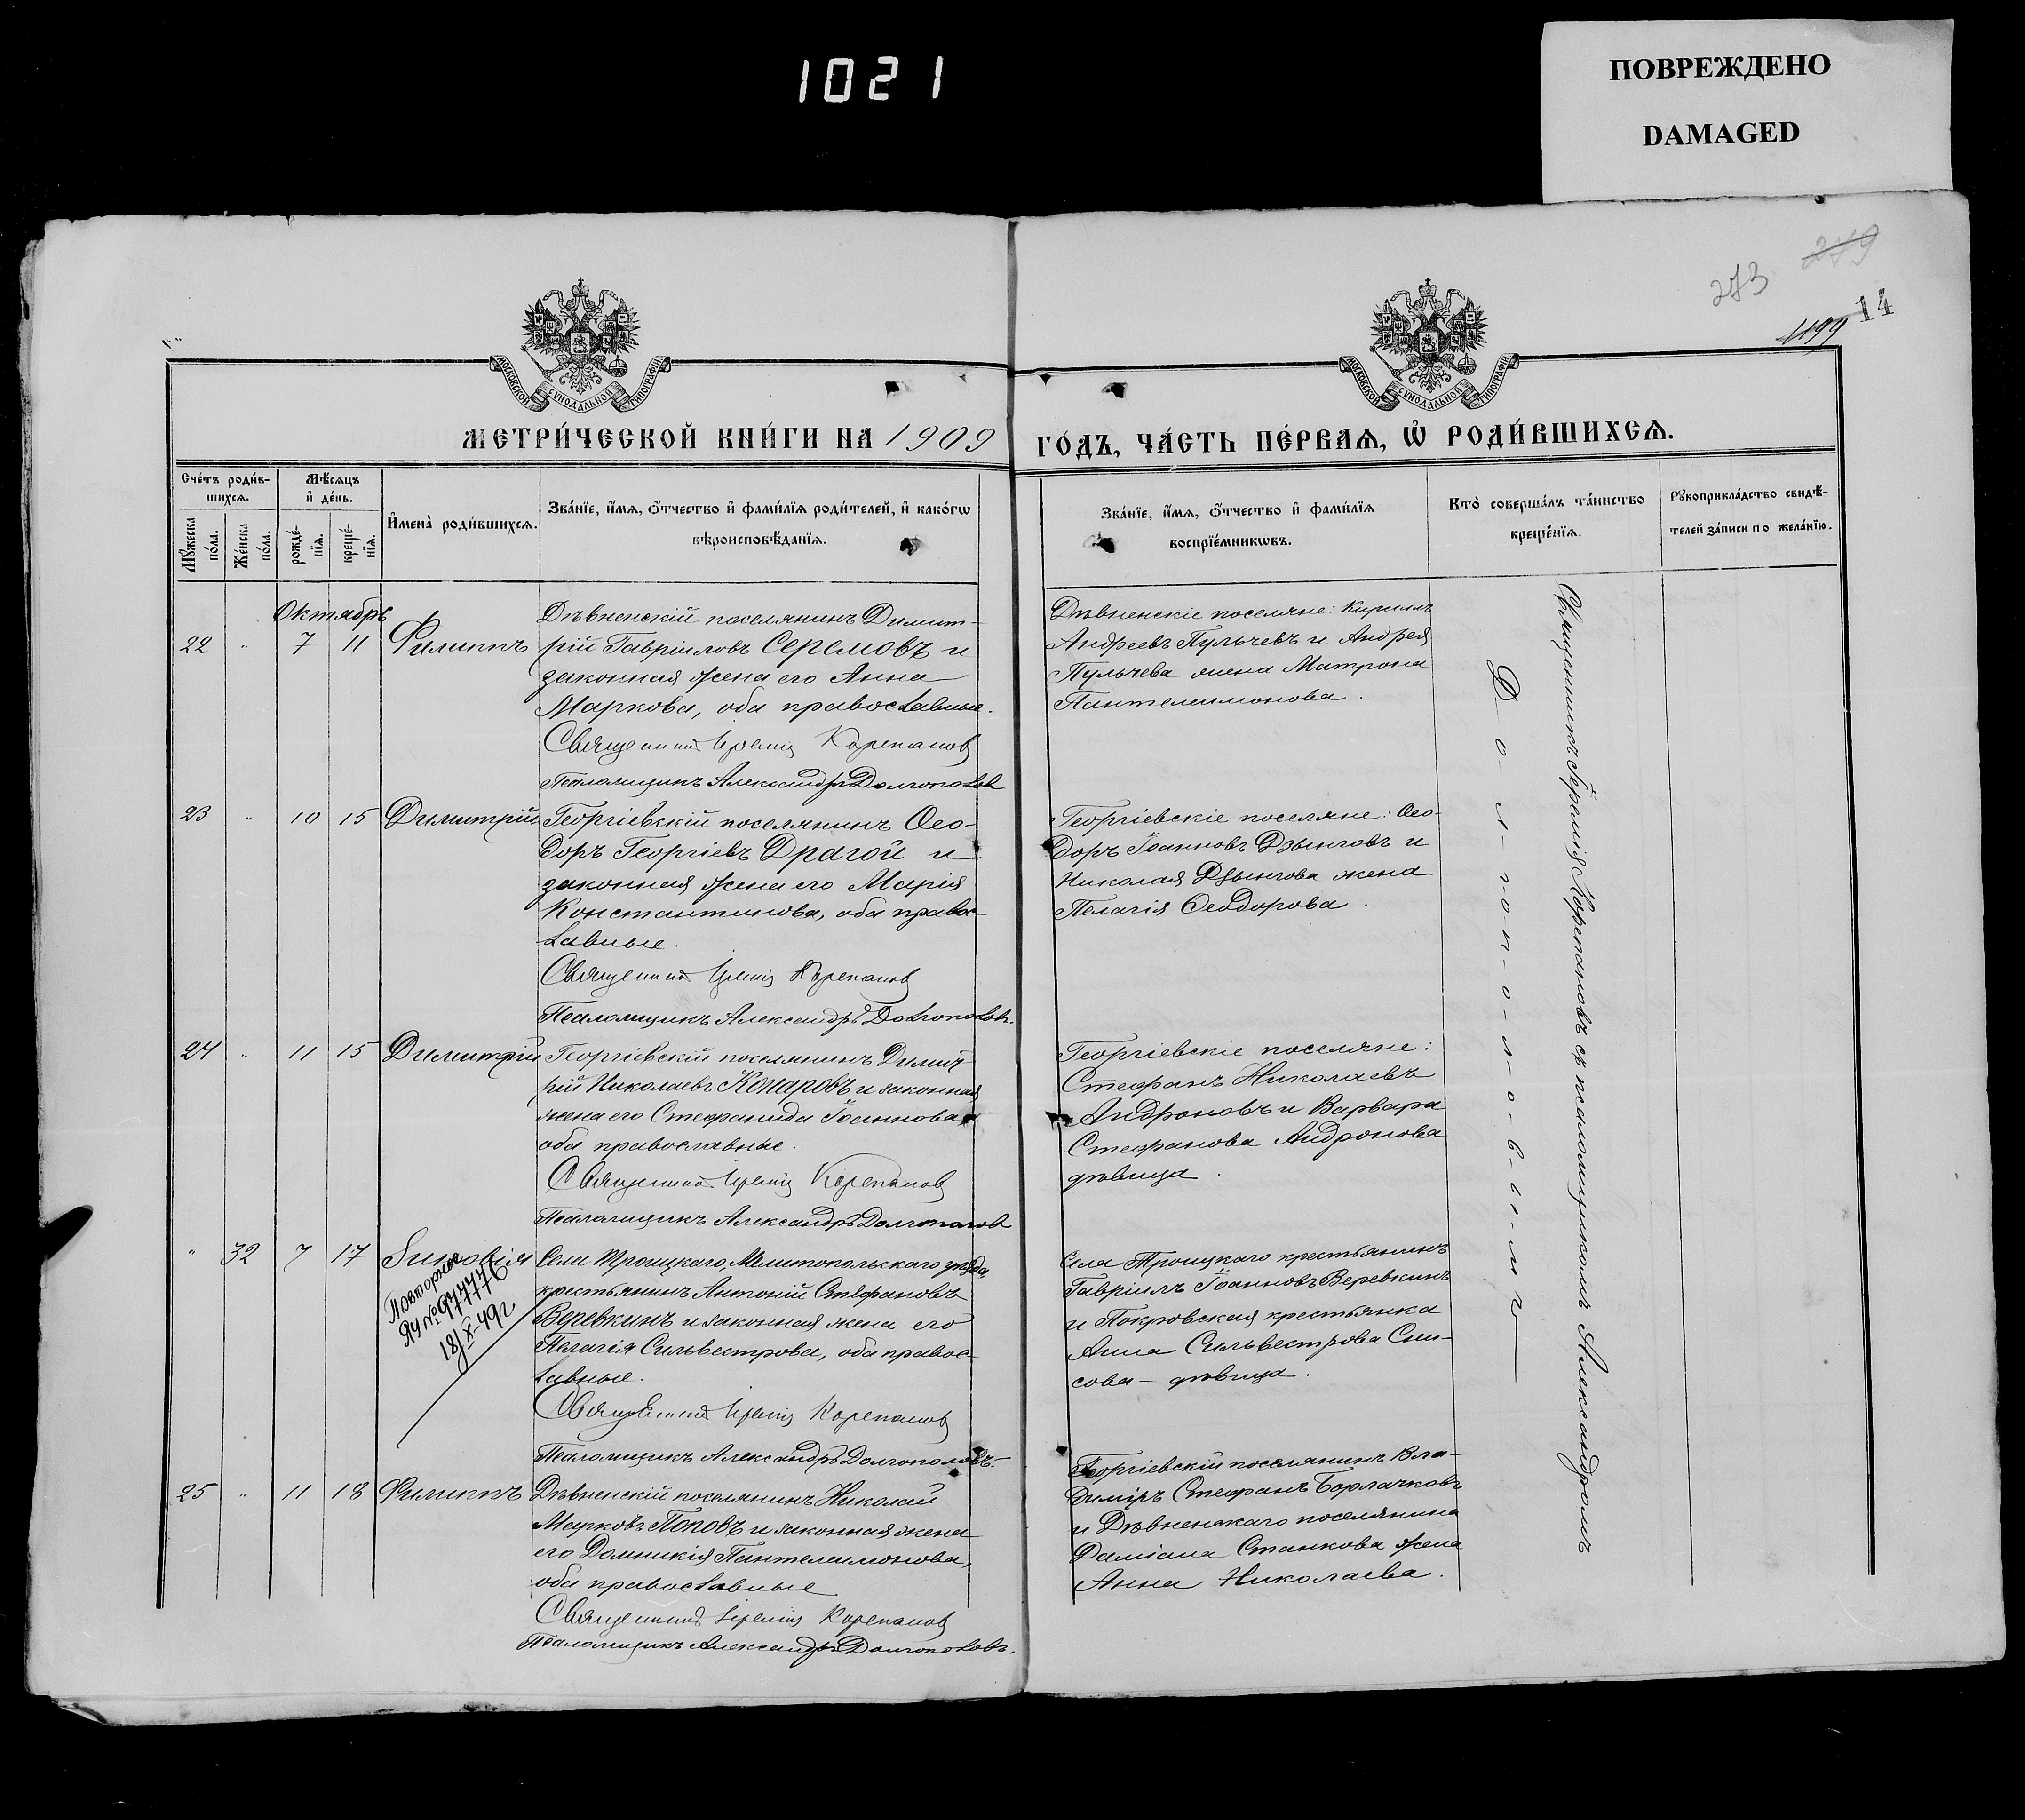 1021
ПОВРЕЖДЕНО
DAMAGED
279
273
14
1199
МОСКОВСКОЙ СѴНОДАЛЬНОЙ ТИПОГРАФІИ
МОСКОВСКОЙ СѴНОДАЛЬНОЙ ТИПОГРАФІИ
МЕТРИ́ЧЕСКОЙ КНИ́ГИ НА 1909
ГО́ДЪ, ЧА́СТЬ ПЕ́РВАѦ, Ѡ҆ РОДИ́ВШИХСѦ.
Сче́тъ роди́в-
шихсѧ.
Мꙋ́жеска
по́ла.
Же́нска
по́ла.
Мѣ́сѧцъ
и҆ де́нь.
рожде́-
нїѧ.
креще́-
нїѧ.
И҆мена̀ роди́вшихсѧ.
Зва́нїе, и҆́мѧ, ѻ҆́тчество и҆ фами́лїѧ роди́телей, и҆ како́гѡ
вѣроисповѣ́данїѧ.
Зва́нїе, и҆́мѧ, ѻ҆́тчество и҆ фами́лїѧ
воспрїе́мникѡвъ.
Кто̀ соверша́лъ та́инство
креще́нїѧ.
Рꙋкоприкла́дство свидѣ́-
телей за́писи по жела́нїю.
Октябрь
22 " 7 11 Филиппъ
Дѣвненскій поселянинъ Димит-
рій Гавріиловъ Серемовъ и
законная жена его Анна
Маркова, оба православные.
Священникъ Іеремія Корепанов
Псаломщикъ Александръ Долгополов
Дѣвненскіе поселяне: Кириллъ
Андреевъ Пульчевъ и Андрея
Пульчева жена Матрона
Пантелеимонова.
23 " 10 15 Димитрій
Георгіевскій поселянинъ Ѳео-
доръ Георгіевъ Драгой и
законная жена его Марія
Константинова, оба правос-
лавные.
Священникъ Іеремія Корепанов
Псаломщикъ Александръ Долгополовъ.
Георгіевскіе поселяне: Ѳео-
доръ Іоанновъ Дзынговъ и
Николая Дзынгова жена
Пелагія Ѳеодорова.
24 " 11 15 Димитрій
Георгіевскій поселянинъ Димит-
рій Николаевъ Кочаровъ и законная
жена его Стефанида Іоаннова
оба православные.
Священникъ Іеремія Корепанов
Псаломщикъ Александръ Долгополов
Георгіевскіе поселяне:
Стефанъ Николаевъ
Андроновъ и Варвара
Стефанова Андронова
дѣвица.
" 32 7 17 Зиновія
Повторное
18/X-49г
Села Троицкаго, Мелитопольскаго уѣзда,
крестьянинъ Антоній Стефановъ
Веревкинъ и законная жена его
Пелагія Сильвестрова, оба правос-
лавные.
Священникъ Іеремія Корепанов
Псаломщикъ Александръ Долгополовъ.
Села Троицкаго крестьянинъ
Гавріилъ Іоанновъ Веревкинъ
и Покровская крестьянка
Анна Сильвестрова Сни-
сова - дѣвица.
25 " 11 18 Филиппъ
Дѣвненскій поселянинъ Николай
Марковъ Поповъ и законная жена
его Домникія Пантелеимонова,
оба православные
Священникъ Іеремія Корепанов
Псаломщикъ Александръ Долгополовъ.
Георгіевскій поселянинъ Вла-
диміръ Стефанъ Борлачковъ
и Дѣвненскаго поселянина
Даміана Станкова жена
Анна Николаева.
Священникъ Іеремія Корепановъ съ псаломщикомъ Александромъ
Д-о-л-г-о-п-о-л-о-в-ы-м-ъ